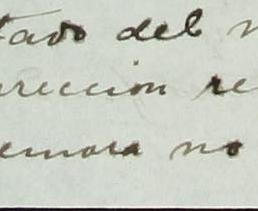 tado del n
rreccion re
emora no